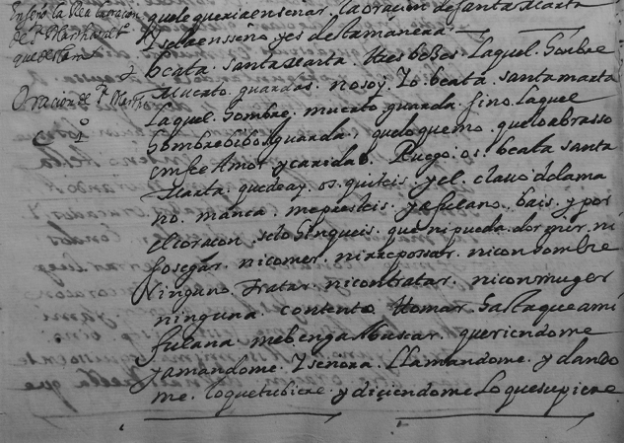 que le queria ensenar. la oracion de santa marta
Y se la enseno y es desta manera.
beata. santa marta. tres beses. laquel. honbre
muerto. guardas. no soy. Yo. beata. santa marta
laquel. honbre, muerto guarda. sino. laquel
honbre bibo guarda; que lo quemo. que lo abrasso
en se Amor y caridad. Ruego. os. beata santa
Marta. que de ay os. quiteis. y el. clavo de la ma
no. manca. me presteis. y a fulano. bais. y por
el coracon. se lo hinqueis. que ni pueda. dormir. ni
sosegar. ni comer. ni rreposar. ni con honbre
Ninguno. tratar. ni contratar. ni con muger
ninguna. contento. tomar. hasta que a mi
fulana. me benga a buscar. queriendome
y amandome. Y señora. Llamandome. y dando
me. lo que tubiere. y diciendome lo que supiere
Oracion de S. Marta